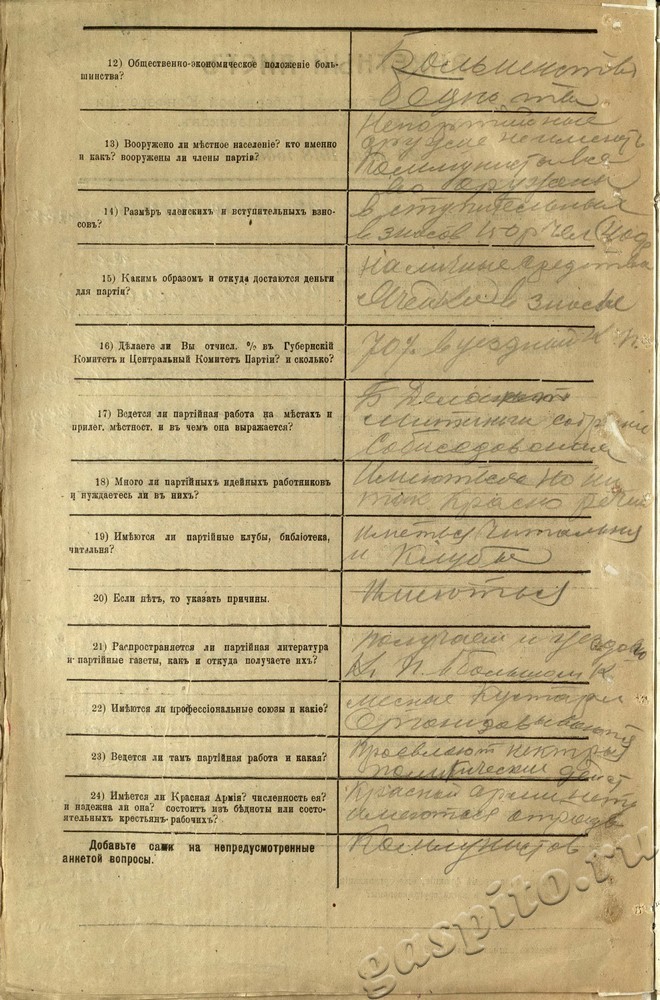 12) Общественно-экономическое положеніе боль-
шинства?
Большинство
беднота
13) Вооружено ли мѣстное населеніе? кто именно
и какъ? вооружены ли члены партіи?
Непартийные
оружие не имеють
Коммунист
во оружены
14) Размѣръ членскихъ и вступительныхъ взно-
совъ?
в ступительных
взносов чел
15) Какимъ образомъ и откуда достаются деньги
для партіи?
Наличные средства
Ячейки взносы
16) Дѣлаете ли Вы отчисл. % въ Губернскій
Комитетъ и Центральный Комитетъ Партіи? и сколько?
в уездный К П.
17) Ведется ли партійная работа на мѣстахъ и
прилег. мѣстност. и въ чемъ она выражается?
митинги собрание
Собиседования
18) Много ли партійныхъ идейныхъ работниковъ
и нуждаетесь ли въ нихъ?
Имеються но ни
так красно
19) Имѣются ли партійные клубы, библіотека,
читальня?
иметься читальня
и Клубы
20) Если нѣтъ, то указать причины.
Имеються
21) Распространяется ли партійная литература
и партійные газеты, какъ и откуда получаете ихъ?
получаем и уездово
К. П. Большом К
22) Имѣются ли профессіональные союзы и какіе?
месные Кустари
Организовываются
23) Ведется ли тамъ партійная работа и какая?
политически
24) Имѣется ли Красная Армія? численность ея?
и надежна ли она? состоитъ изъ бѣдноты или состо-
ятельныхъ крестьянъ-рабочихъ?
Красной армии нету
имеються отряд
Добавьте сами на непредусмотренные
анкетой вопросы.
Коммунистов
gaspito.ru